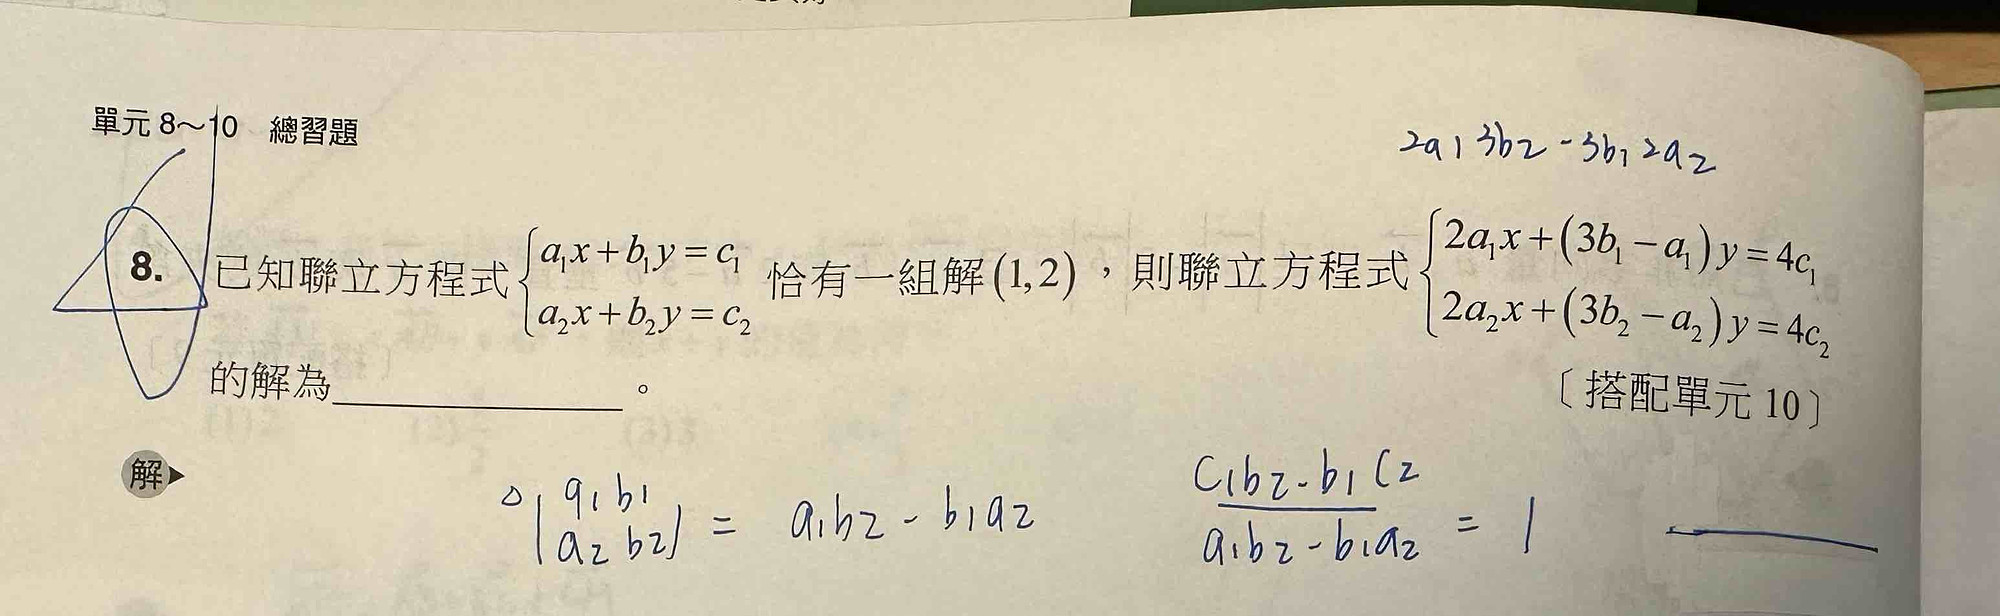 單元 8～10 總習題
2a₁3b₂-3b₁2a₂
8. 已知聯立方程式 { a₁x+b₁y=c₁ a₂x+b₂y=c₂ 恰有一組解(1,2)，則聯立方程式 { 2a₁x+(3b₁-a₁)y=4c₁ 2a₂x+(3b₂-a₂)y=4c₂
的解為＿＿＿＿＿＿。
〔搭配單元 10〕
解
△|a₁ b₁ a₂ b₂| = a₁b₂-b₁a₂ (c₁b₂-b₁c₂)/(a₁b₂-b₁a₂) = 1